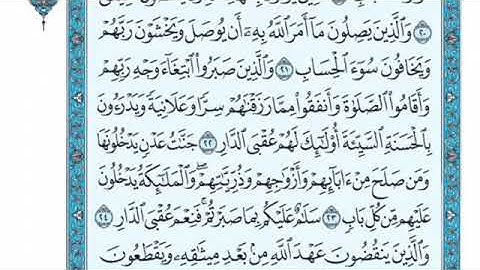 وَٱلَّذِينَ يَصِلُونَ مَآ أَمَرَ ٱللَّهُ بِهِۦٓ أَن يُوصَلَ وَيَخْشَوْنَ رَبَّهُمْ
وَيَخَافُونَ سُوٓءَ ٱلْحِسَابِ ٢١ وَٱلَّذِينَ صَبَرُوا۟ ٱبْتِغَآءَ وَجْهِ رَبِّهِمْ
وَأَقَامُوا۟ ٱلصَّلَوٰةَ وَأَنفَقُوا۟ مِمَّا رَزَقْنَٰهُمْ سِرًّا وَعَلَانِيَةً وَيَدْرَءُونَ
بِٱلْحَسَنَةِ ٱلسَّيِّئَةَ أُو۟لَٰٓئِكَ لَهُمْ عُقْبَى ٱلدَّارِ ٢٢ جَنَّٰتُ عَدْنٍ يَدْخُلُونَهَا
وَمَن صَلَحَ مِنْ ءَابَآئِهِمْ وَأَزْوَٰجِهِمْ وَذُرِّيَّٰتِهِمْ ۖ وَٱلْمَلَٰٓئِكَةُ يَدْخُلُونَ
عَلَيْهِم مِّن كُلِّ بَابٍ ٢٣ سَلَٰمٌ عَلَيْكُم بِمَا صَبَرْتُمْ ۚ فَنِعْمَ عُقْبَى ٱلدَّارِ ٢٤
وَٱلَّذِينَ يَنقُضُونَ عَهْدَ ٱللَّهِ مِنۢ بَعْدِ مِيثَٰقِهِۦ وَيَقْطَعُونَ